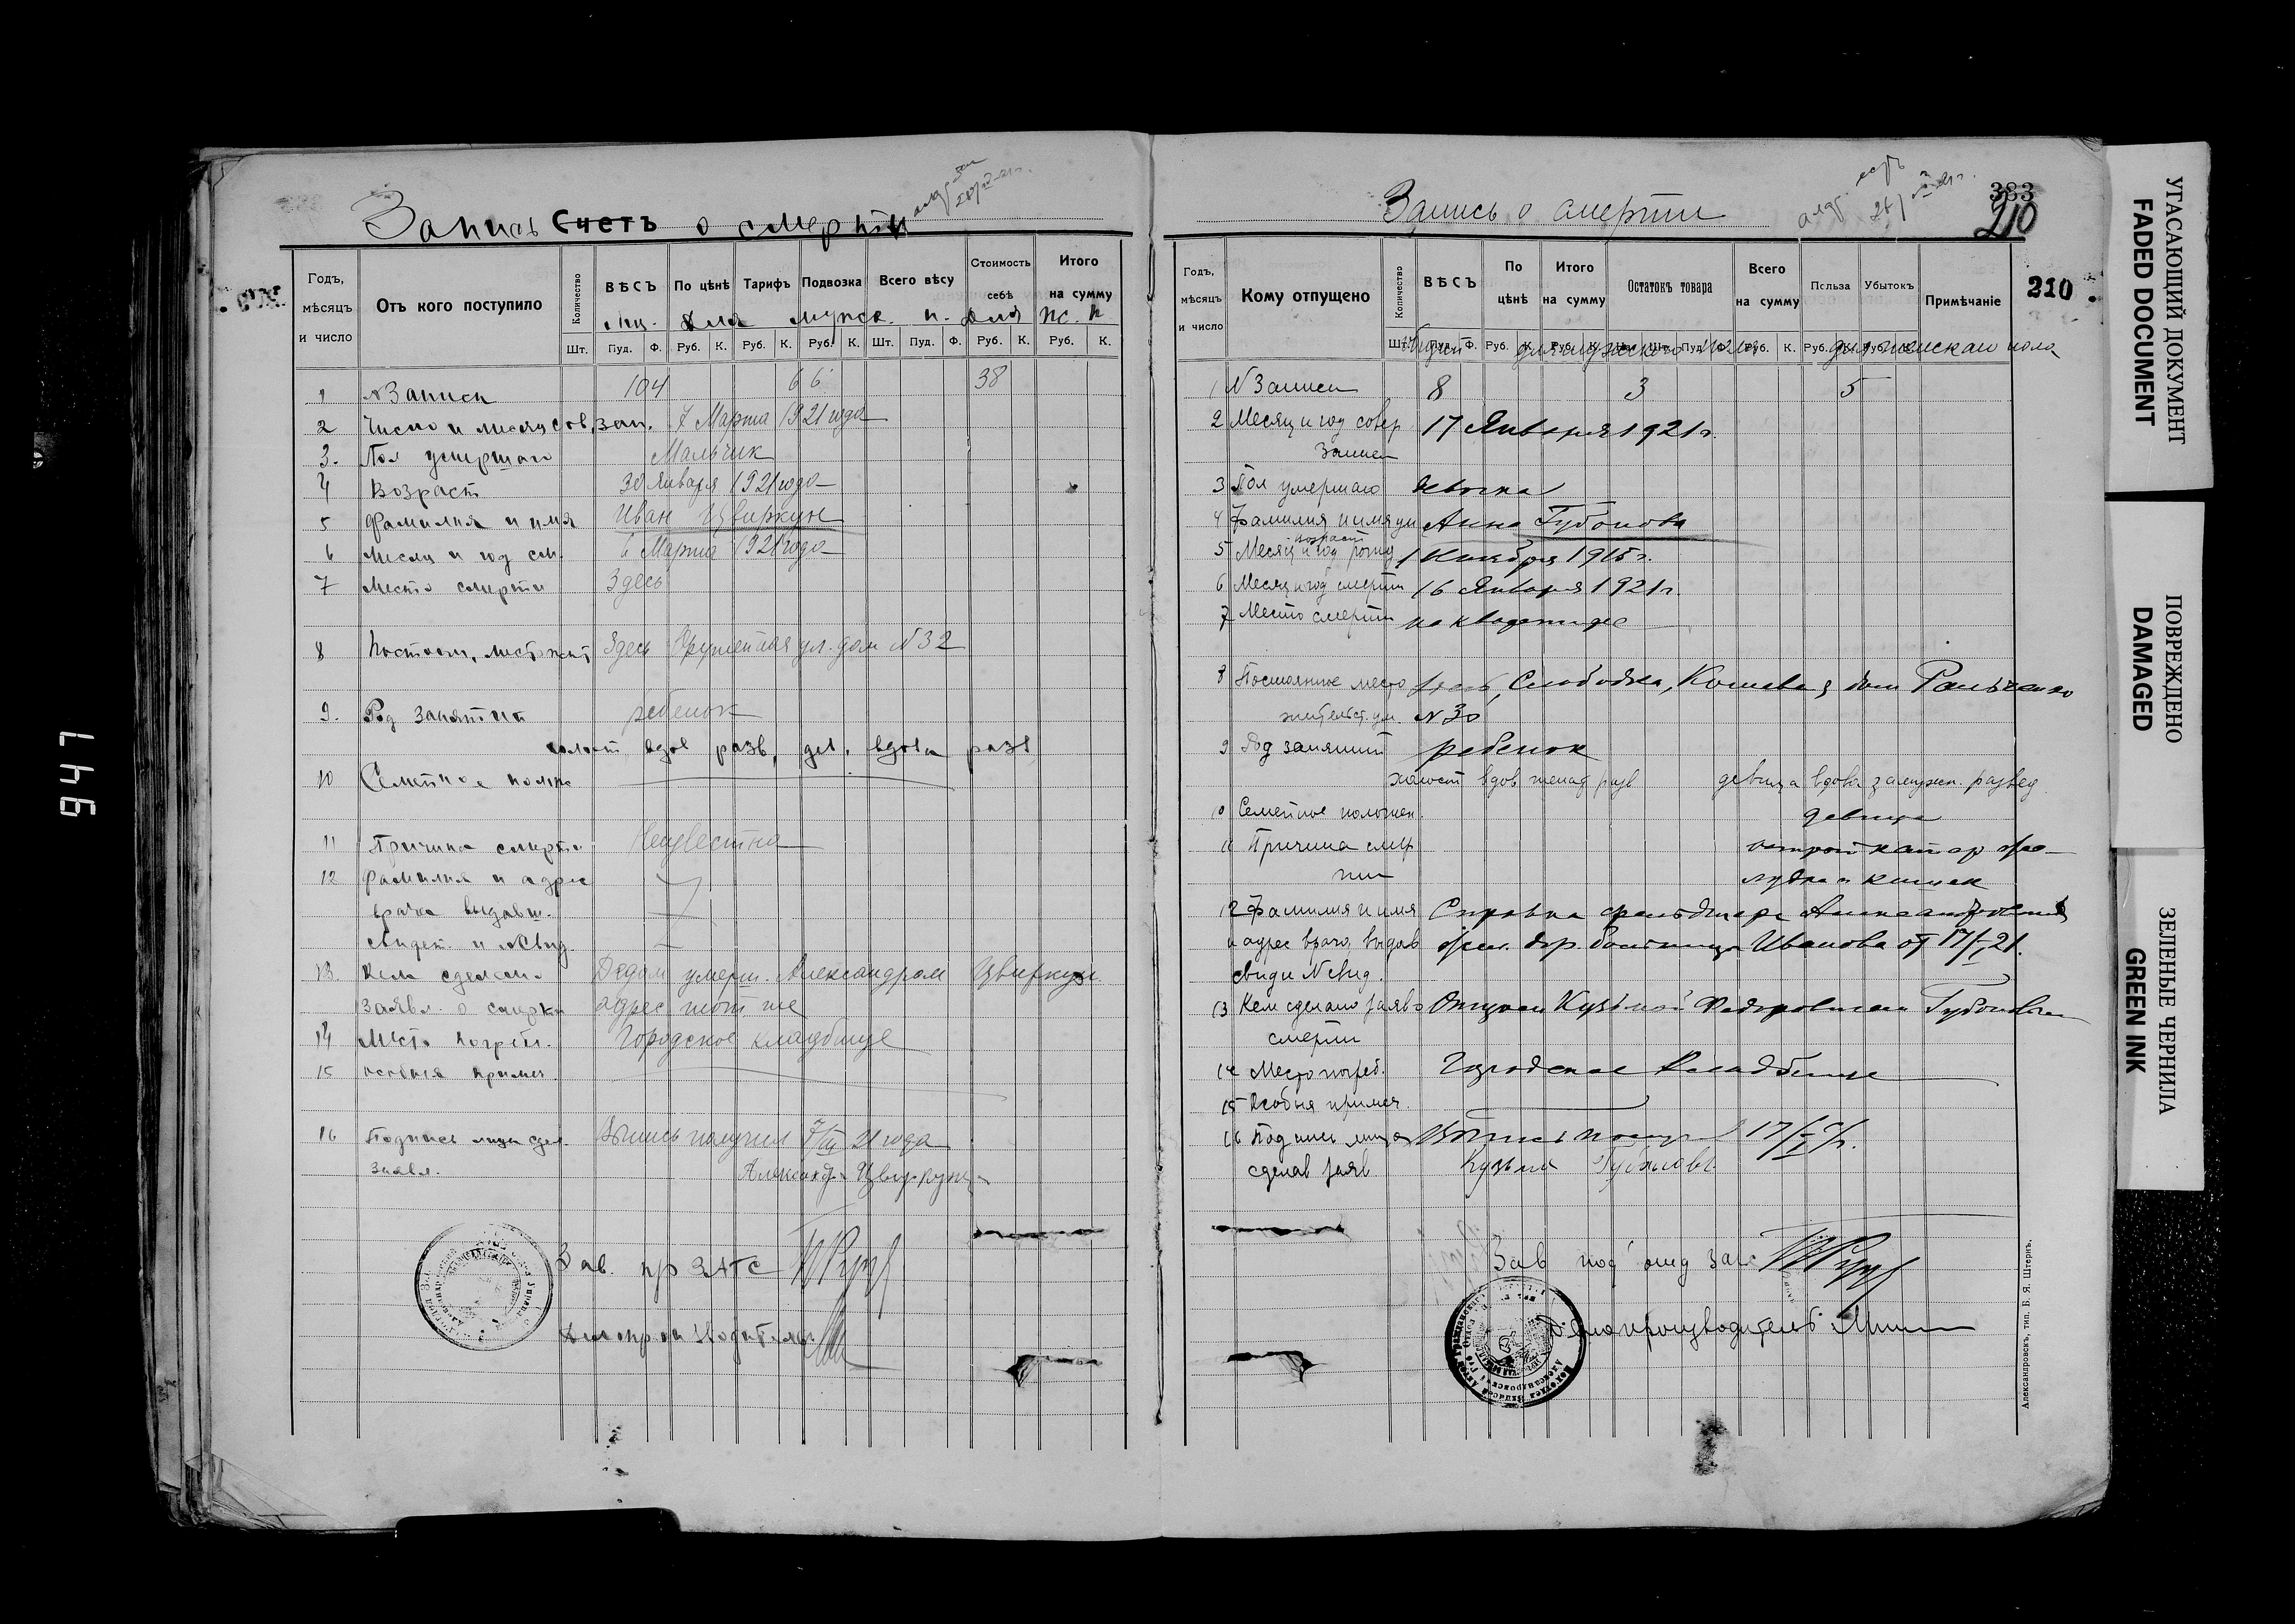 Запись Счетъ о смерти
Годъ, мѣсяцъ и число
Отъ кого поступило
Количество
ВѢСЪ
По цѣнѣ
Тарифъ
Подвозка
Всего вѣсу
Стоимость себѣ
Итого на сумму
для мужск. п. для ж. п.
Шт. Пуд. Ф. Руб. К. Руб. К. Руб. К. Шт. Пуд. Ф. Руб. К. Руб. К.
1 № Записи 104 66 38
2 Число и месяц сов. зап. 7 Марта 1921 года
3. Пол умершаго Мальчик
4 Возраст 30 Января 1921 года
5 Фамилия и имя Иван Цвиркун
6 Месяц и год см. 6 Марта 1921 года
7 Место смерти Здесь
8 Постоян. мест жит Здесь Оружейная ул. дом № 32
9. Род занятий ребенок
холост вдов разв. дев. вдова разв
10 Семейное полож
11 Причина смерти Неизвестна
12 Фамилия и адрес
врача выдавш.
свидет. и № свид.
13. Кем сделано Дедом умерш. Александром Цвиркун
заявл. о смерти адрес тот же
14 Место погреб. Городское кладбище
15 особыя примеч.
16 Подпись лица сдел. Выпись получил 7/III 21 года
заявл. Александр Цвиркун
Зав. пр ЗАГС
Делопроизводитель
Запись о смерти
383
210
210
Годъ, мѣсяцъ и число
Кому отпущено
Количество
ВѢСЪ
По цѣнѣ
Итого на сумму
Остатокъ товара
Всего на сумму
Польза
Убытокъ
Примѣчаніе
Общий для мужского пола для женскаго пола
Шт. Пуд. Ф. Руб. К. Руб. К. Шт. Пуд. Ф. Руб. К. Руб. К. Руб. К.
1 № Записи 8 3 5
2 Месяц и год совер 17 Января 1921 г.
Записи
3 Пол умершаго девочка
4 Фамилия и имя ум Анна Губонова
возраст
5 Месяц и год рожд 1 Ноября 1915 г.
6 Месяц и год смерти 16 Января 1921 г.
7 Место смерти на квартире
8 Постоянное место здесь, Слободка, Кошевая, дом
жительст. ум. № 30
9 Род занятий ребенок
холост вдов женат разв девица вдова замужн. развед.
10 Семейное положен. девица
11 Причина смер острой катар же-
ти лудка и кишек
12 Фамилия и имя Справка фельдшера Александровской
и адрес врача выдав жел. дор. больницы Иванова от 17/I 21.
свид и № свид.
13 Кем сделано заяв о Отцом Кузьмой Федоровичем Губоновым
смерти
14 Место погреб. Городское Кладбище
15 Особыя примеч.
16 Подпись лица Выпись получил 17/I 21 г.
сделав заяв Кузьма Губонов
Зав под'отд загс
Делопроизводитель
Александровскъ, тип. Б. Я. Штернъ.
УГАСАЮЩИЙ ДОКУМЕНТ
FADED DOCUMENT
ПОВРЕЖДЕНО
DAMAGED
ЗЕЛЕНЫЕ ЧЕРНИЛА
GREEN INK
947